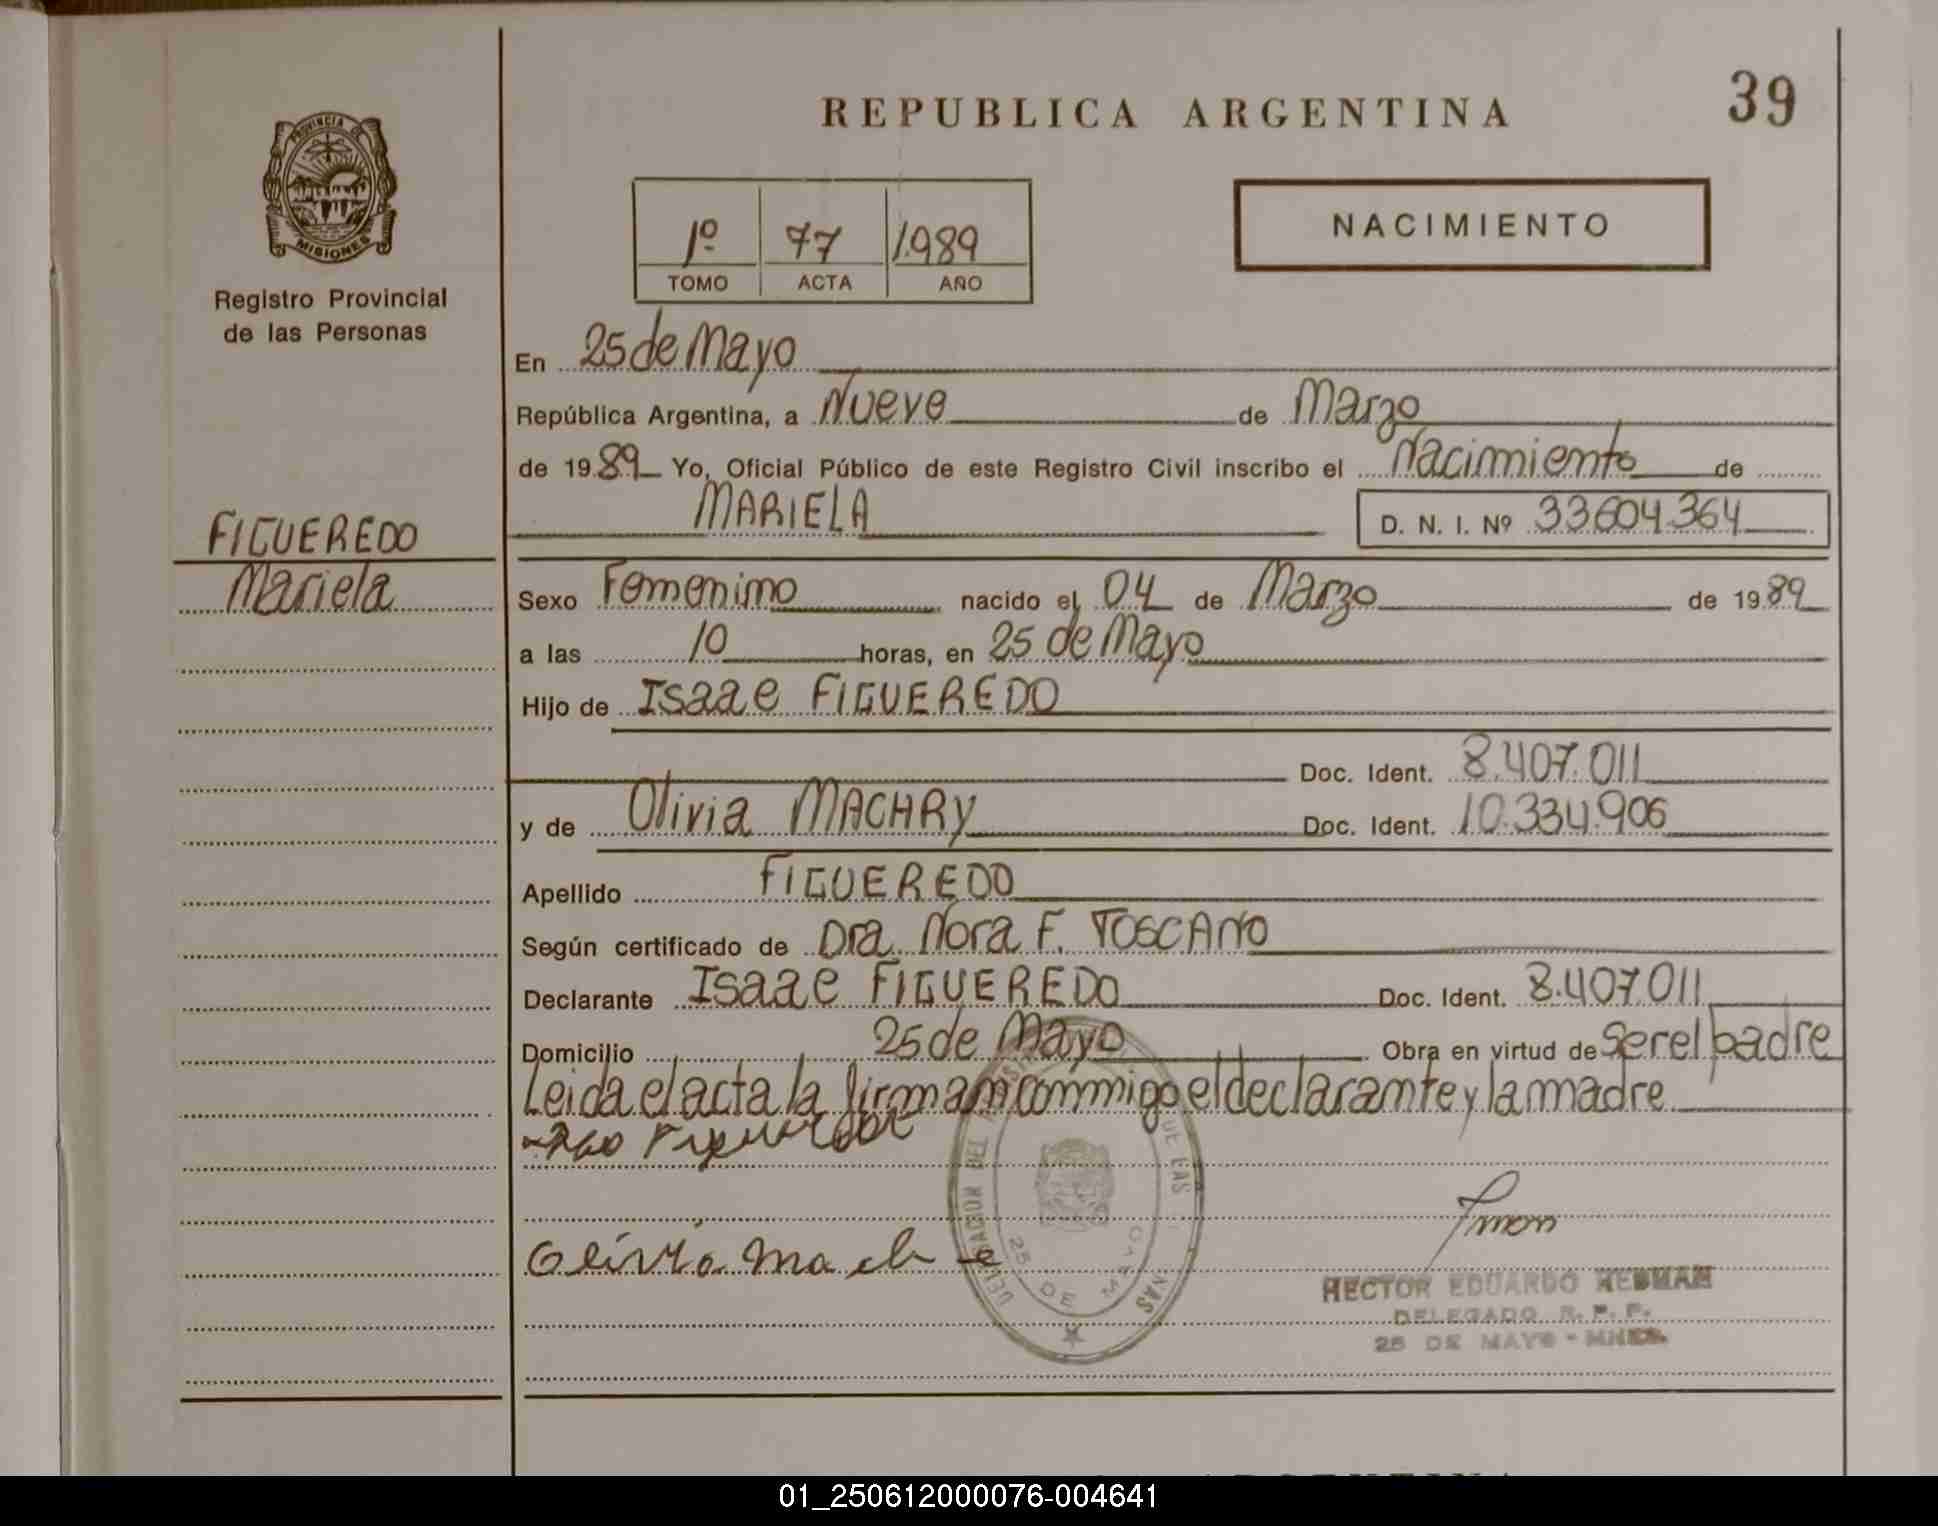 REPUBLICA ARGENTINA
39
PROVINCIA DE
MISIONES
Registro Provincial
de las Personas
1º 77 1.989
TOMO ACTA AÑO
NACIMIENTO
En 25 de Mayo
República Argentina, a Nueve de Marzo
de 19 89 Yo, Oficial Público de este Registro Civil inscribo el Nacimiento de
MARIELA D. N. I. Nº 33.604.364
FIGUEREDO
Mariela
Sexo Femenino nacido el 04 de Marzo de 19 89
a las 10 horas, en 25 de Mayo
Hijo de Isaac FIGUEREDO
Doc. Ident. 8.407.011
y de Olivia MACHRY Doc. Ident. 10.334.906
Apellido FIGUEREDO
Según certificado de Dra. Nora F. TOSCANO
Declarante Isaac FIGUEREDO Doc. Ident. 8.407.011
Domicilio 25 de Mayo Obra en virtud de ser el padre
Leida el acta la firman conmigo el declarante y la madre
25 DE MAYO
HECTOR EDUARDO REDMAN
DELEGADO R. P. P.
25 DE MAYO - MNES.
01_250612000076-004641